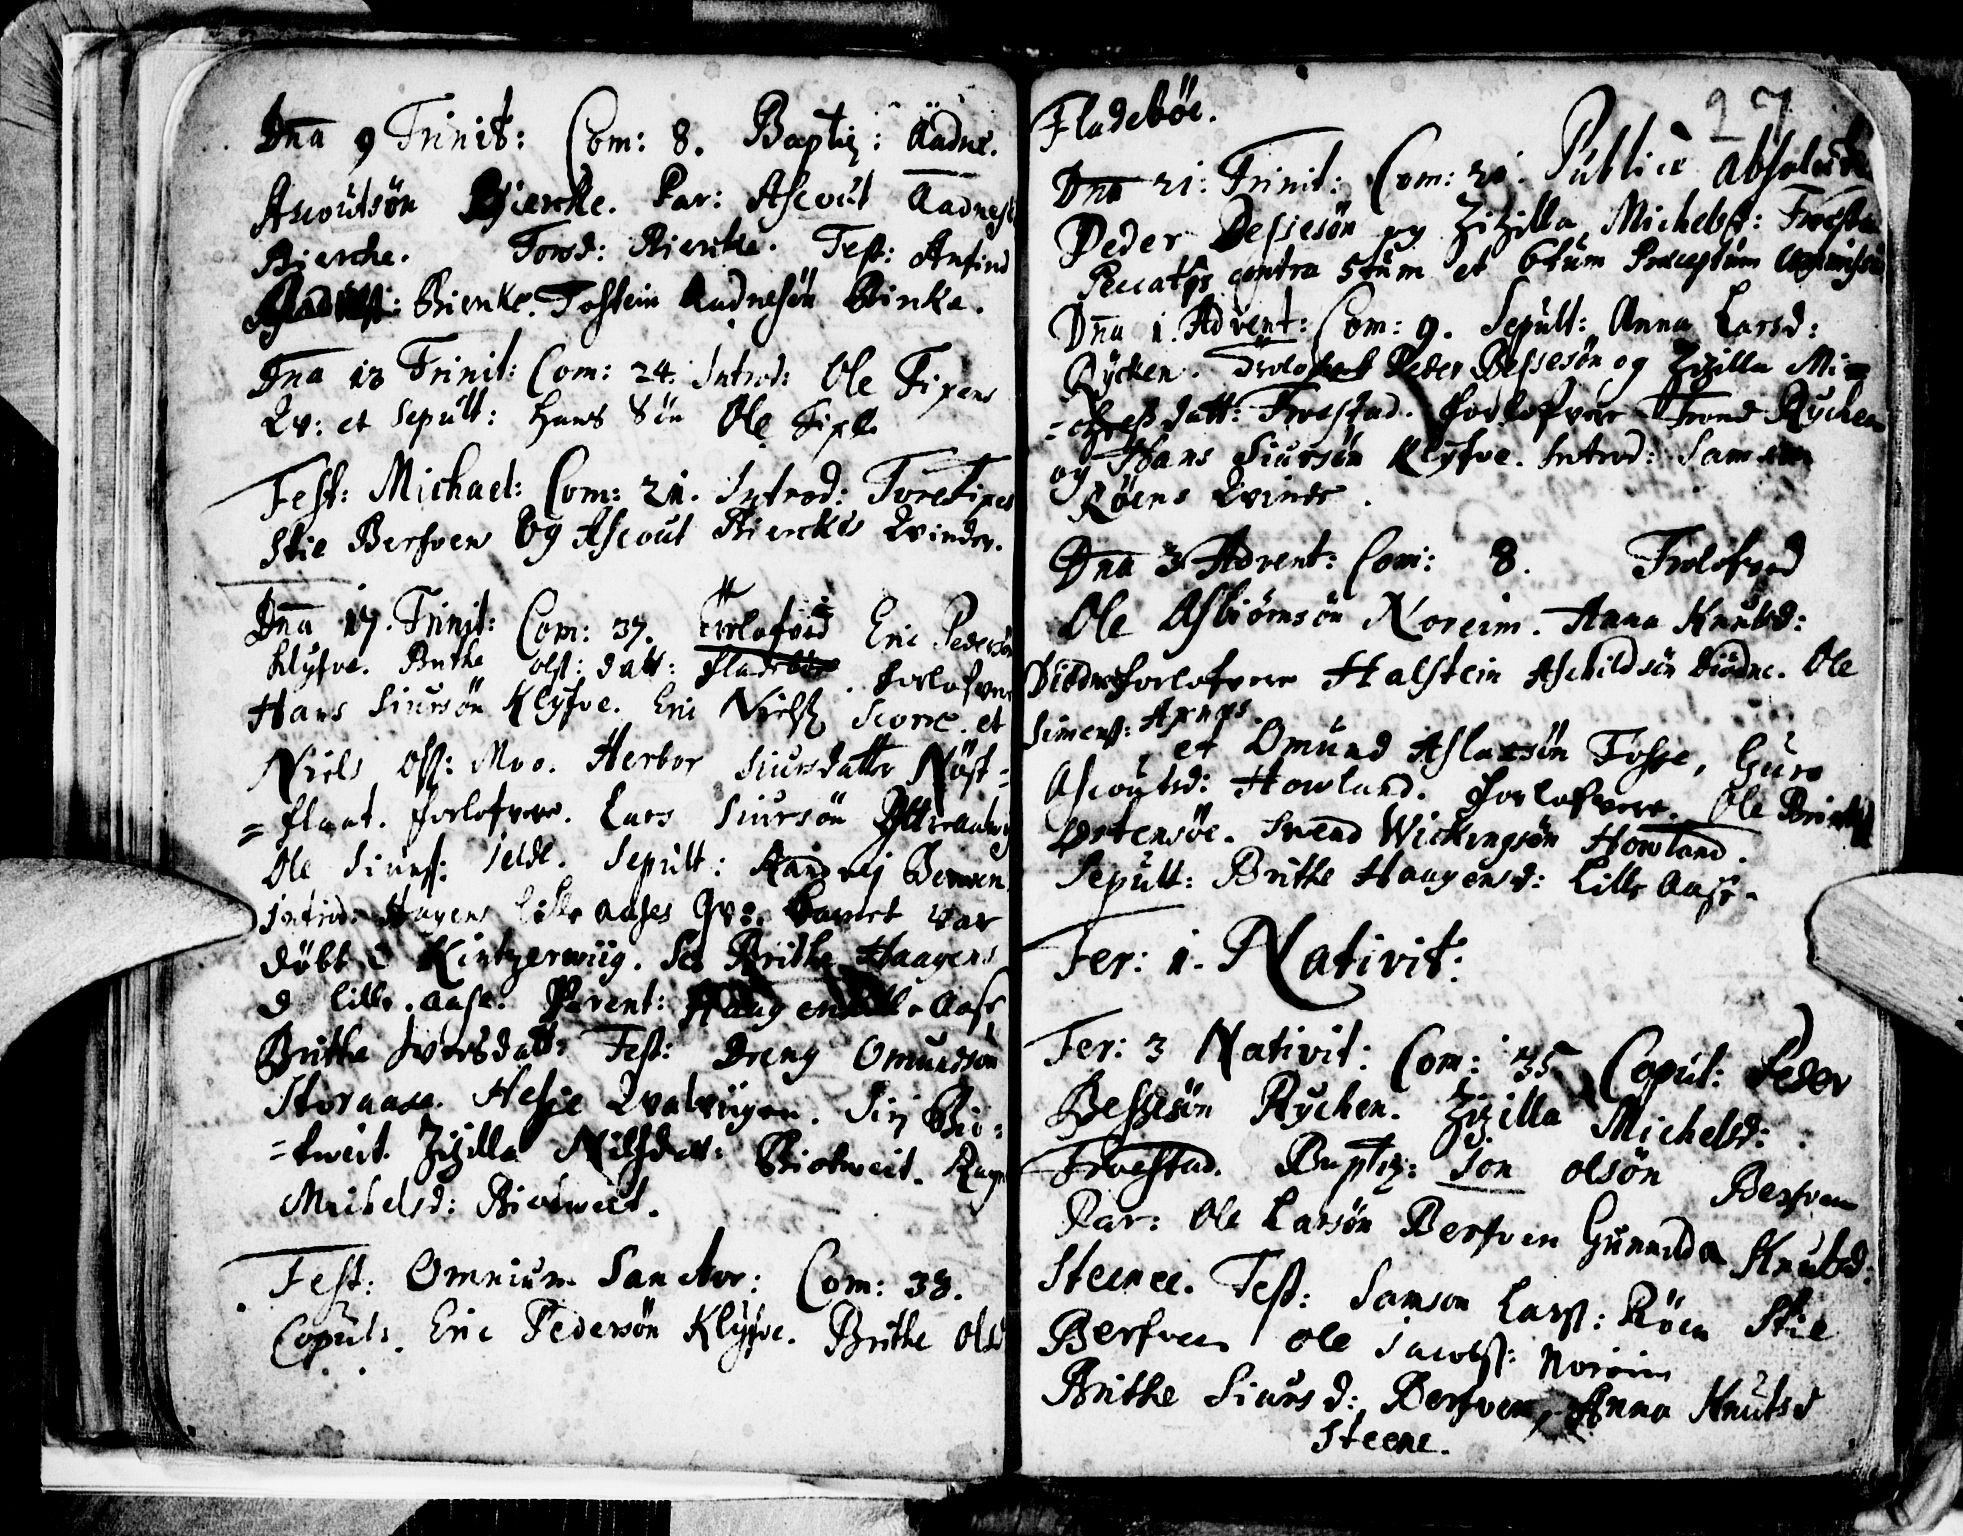 Dna 9 Trinit: Com: 8. Baptiz: Aadne.
Ascoutsön Bierche. Par: Ascout Aadnes
Bierche. Tord: Biercke. Test: Anfind
Bierke. Tostein Aadnesön Birke.
Dna 13 Trinit: Com: 24. Introd: Ole Tipens
Qv: et Sepult: Hans Sön Ole Tipe
Fest: Michael: Com: 21. Introd: Tore Tipes
Stie Berfven Og Ascout Bierckes Qvinder.
Dna 17. Trinit: Com: 37. Trolofvid Eric Pedersön
Klyfve. Brithe Ols: datt: Fladeböe. forlofvere
Hans Siursön Klyfve. Eric Niels Scorre. et
Niels Ols: Moo. Herbor Siursdatter Nöst=
=flaat. forlofvere. Lars Siursön
Ole Siurs: Selde. Sepult:
Introd: Hagens Lille Aases Qv: barnet var
döbt i Kintzerwiig. Sc Brithe Haagens
d Lille. Aase. Parent: Haagen Lille Aase
Brithe Iversdatt: Test: Dreng Omundsön
Storaase. Hesje Qvalvigen. Siri Bio=
=tweit. Zizilla Nilsdatt: Biotweit. Rag
Michelsd: Biotweit.
Fest: Omnium Sanctor: Com: 38.
Copul: Eric Pedersön Klyfve. Brithe Olsd
27
Fladeböe.
Dna 21: Trinit: Com: 21. Publice absoluta
Peder Bessesön og Zizilla Michelsd: Froestad
Peccatis contra 5tum et 6tum Præceptum
Dna 1. Advent: Com: 9. Sepult: Anna Larsd:
Rycken. Trolofvet Peder Bessesön og Zizilla Mi=
=chels datt: Froestad. forlofvere Trond Rychen
og Hans Siursön Klyfve. Introd: Samson
Röens Qvinde.
Dna 3 Advent: Com: 8. Trolofved
Ole Asbiörnsön Noreim. Anna Knutsd:
Diödne forlofvere Halstein Aschildsön Diödne. Ole
Simens:
et Omund Aslaxsön Fosse, Guro
Ascoutsd: Howland. forlofvere. Ole
Östensöe. Svend Wickingsön Howland.
Sepult: Brithe Haagensd: Lille Aase.
Fer: 1. Nativit:
Fer: 3 Nativit: Com: 35 Copul: Peder
Bessesön Rychen. Zizilla Michelsd:
Froestad. Baptiz: Jon Olsön Berfven
Par: Ole Larsön Berfven Gunnilda Knutsd:
Steenee. Test: Samson Lars: Röen Stie
Berfven Ole Jacobs: Noreim
Brithe Siursd: Berfven, Anna Knutsd
Steene.